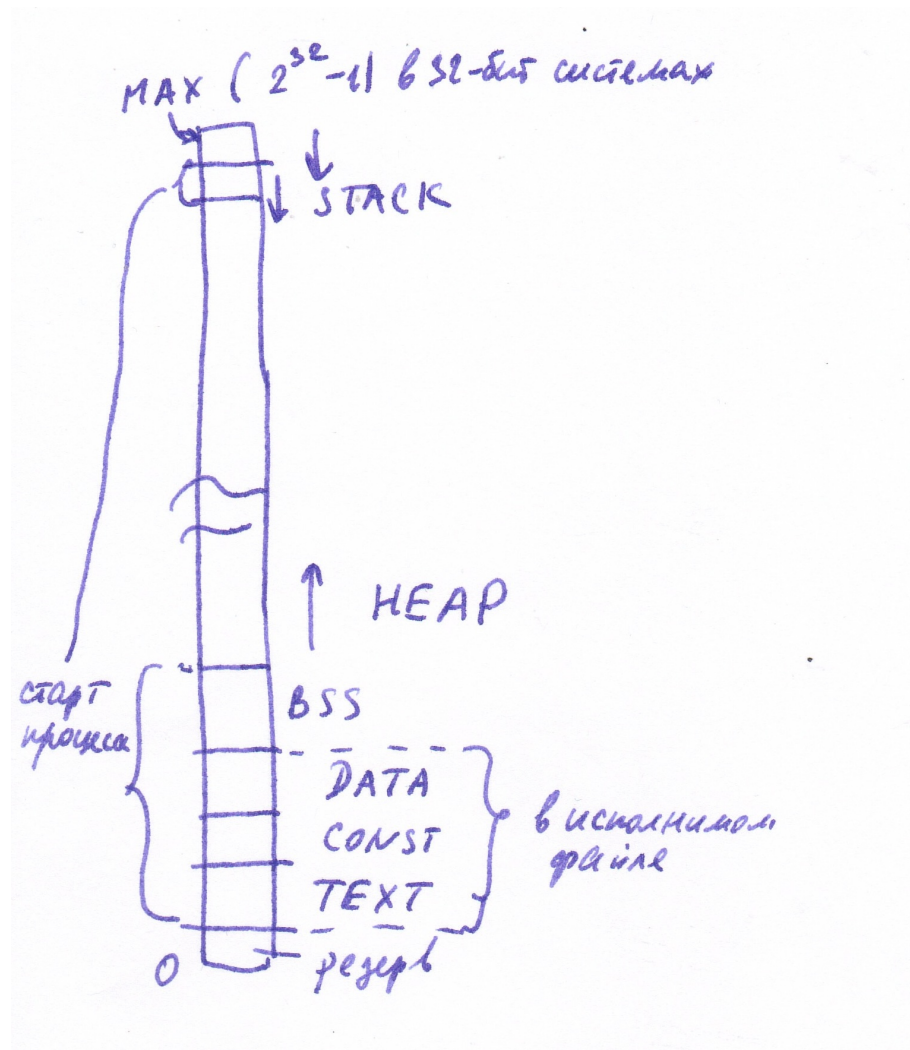 MAX (2^32-1) в 32-бит системах
STACK
HEAP
старт
процеса
BSS
DATA
CONST
TEXT
в исполнимом
файле
0
резерв